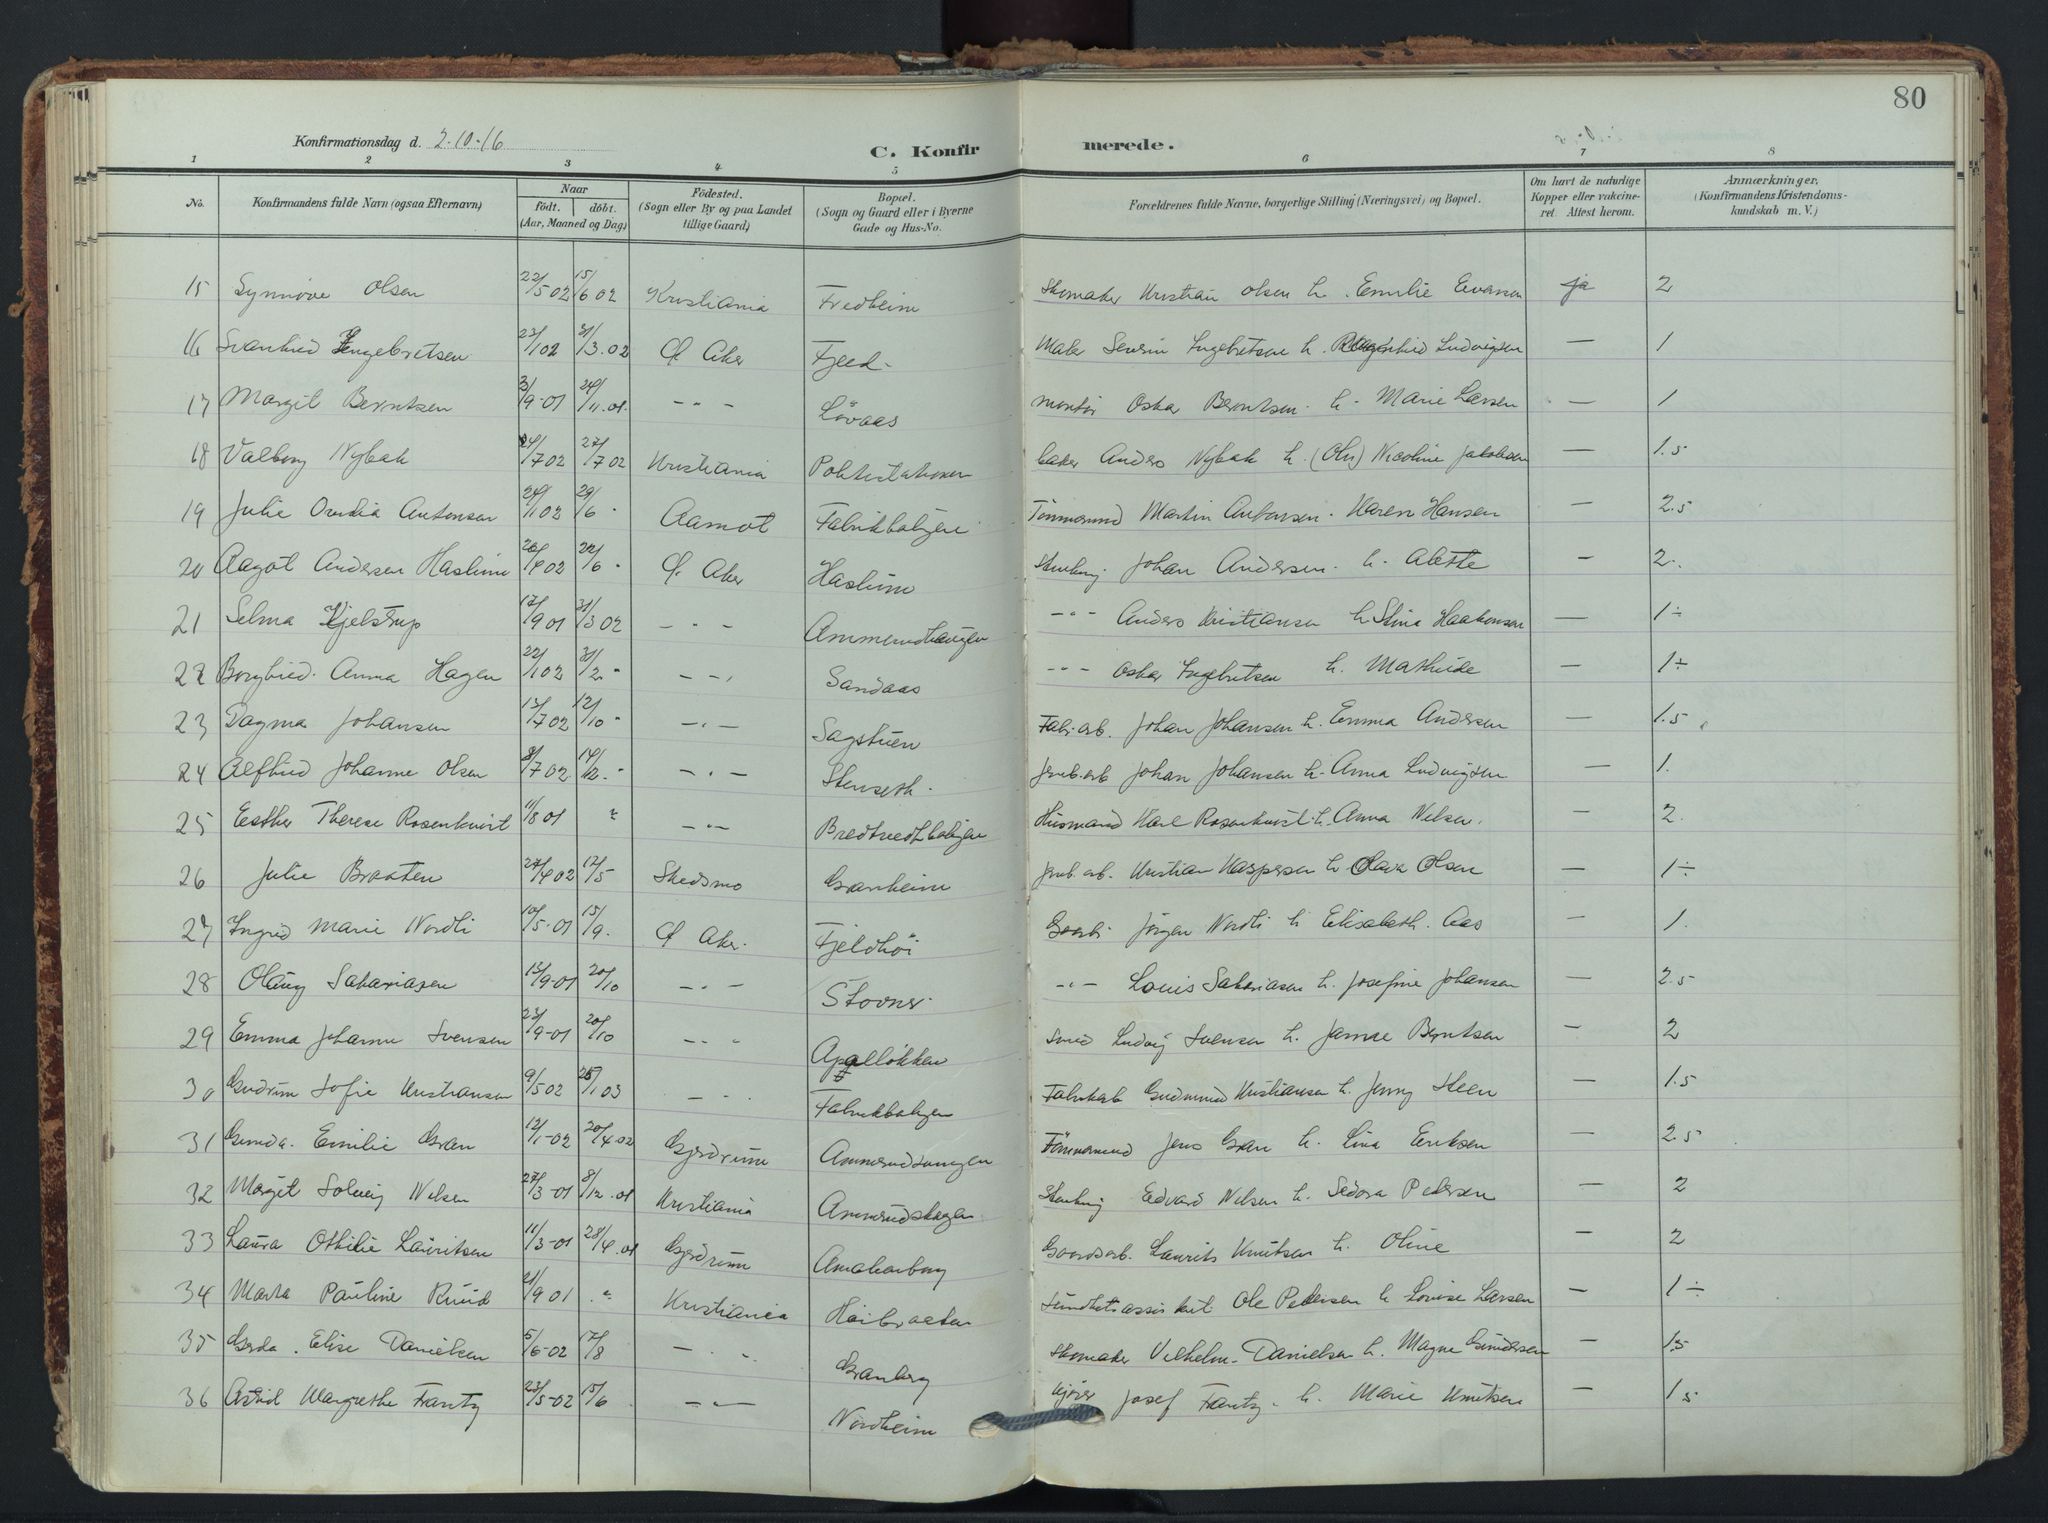 80
Konfirmationsdag d. 2-10-16
C. Konfirmerede.
1 2 3 4 5 6 7 8
No.
Konfirmandens fulde Navn (ogsaa Efternavn)
Naar
født. døbt.
(Aar, Maaned og Dag)
Fødested.
(Sogn eller By og paa Landet
tillige Gaard)
Bopæl.
(Sogn og Gaard eller i Byerne
Gade og Hus-No.
Forældrenes fulde Navne, borgerlige Stilling (Næringsvei) og Bopæl.
Om havt de naturlige
Kopper eller vakcine-
ret. Attest herom.
Anmærkninger,
(Konfirmandens Kristendoms-
kundskab m. V.)
15 Synnøve Olsen 22/5 02 15/6 02 Kristiania Fredheim Skomaker Kristian Olsen h. Emilie Evansen ja 2
16 Svanhild Ingebretsen 23/1 02 31/3.02 Ø. Aker Fjeld. Maler Severin Ingebretsen h. Ludvigsen — 1
17 Margit Berntsen 3/9-01 24/11.01. - " - Løvaas montør Oskar Berntsen. h. Marie Larsen — 1
18 Valborg Nybak 24/7 02 27/7 02 Kristiania Politistationen baker Anders Nybak h. (Olu) Nicoline Jakobsen — 1.5
19 Julie Ovidia Antonsen 24/1 02 29/6 " Aamot Fabrikboligen Tømmermd Martin Antonsen. Karen Hansen — 2.5
20 Aagot Andersen Haslum 20/4 02 22/6 " Ø. Aker Haslum Stenhug. Johan Andersen. h. Alette — 2.
21 Selma Kjelstrup 17/9 01 31/3 02 - " - Ammerudhaugen - " - Anders Kristiansen h Stina Haakensen — 1÷
22 Borghild. Anna Hagen 22/1 02 31/2. " - " - Sandaas - " - Oskar Ingebretsen h. Mathilde — 1÷
23 Dagma Johansen 13/7 02 12/10 " - " - Sagstuen Fabr. arb. Johan Johansen h. Emma Andersen — 1.5
24 Alfhild Johanne Olsen 8/7 02 14/12. " - " - Stenseth. Jernb. arb Johan Johansen h. Anna Ludvigsen — 1.
25 Esther Therese Rosenkvist 11/8 01 " - " - Bredtvedtboligen Husmand Karl Rosenkvist. h. Anna Nelsen. — 2.
26 Julie Braaten 27/4 02 12/5 Skedsmo Granheim Jernb. arb. Kristian Kaspersen h Olava Olsen — 1÷
27 Ingrid Marie Nordli 10/5-01 15/9. Ø. Aker. Fjeldhøi Jørgen Nordli h Elisabeth. Aas — 1.
28 Olaug Sakariasen 13/9-01 20/10 - " - Stovner. - " - Louis Sakariasen h. Josefine Johansen — 2.5
29 Emma Johanne Svensen 23/9-01 20/10 - " - Apalløkken Smed Ludvig Svensen h. Berntsen — 2
30 Gudrun Sofie Kristiansen 9/5 02 25/1 03 - " - Fabrikboligen Fabrikarb Gudmund Kristiansen h. Jenny Steen — 1.5
31 Gunda. Emilie Gran 12/1-02 20/4.02 Gjerdrum Ammerudhaugen Tømmermd Jens Gran h. Lina Eriksen — 2.5
32 Margit Solveig Nelsen 27/3-01 8/12.01 Kristiania Ammerudskogen Stenhug Edvard Nelsen h. Sedora Pedersen — 2
33 Laura Othilie Lauritsen 11/3-01 28/4.01 Gjerdrum Amalienborg Gaardsarb. Laurits Knutsen h. Oline — 2
34 Marta Pauline Ruud 21/9 01 " Kristiania Høibraaten Ole Pedersen h Louise Larsen — 1÷
35 Gerda. Elise Danielsen 5/6-02 17/8 - " - Granberg Skomaker Vilhelm. Danielsen h. Magna Gundersen — 1.5
36 Astrid Margrethe Frantz 23/5-02 15/6 - " - Nordheim Kjører Josef Frantz. h. Marie Knutsen — 1.5